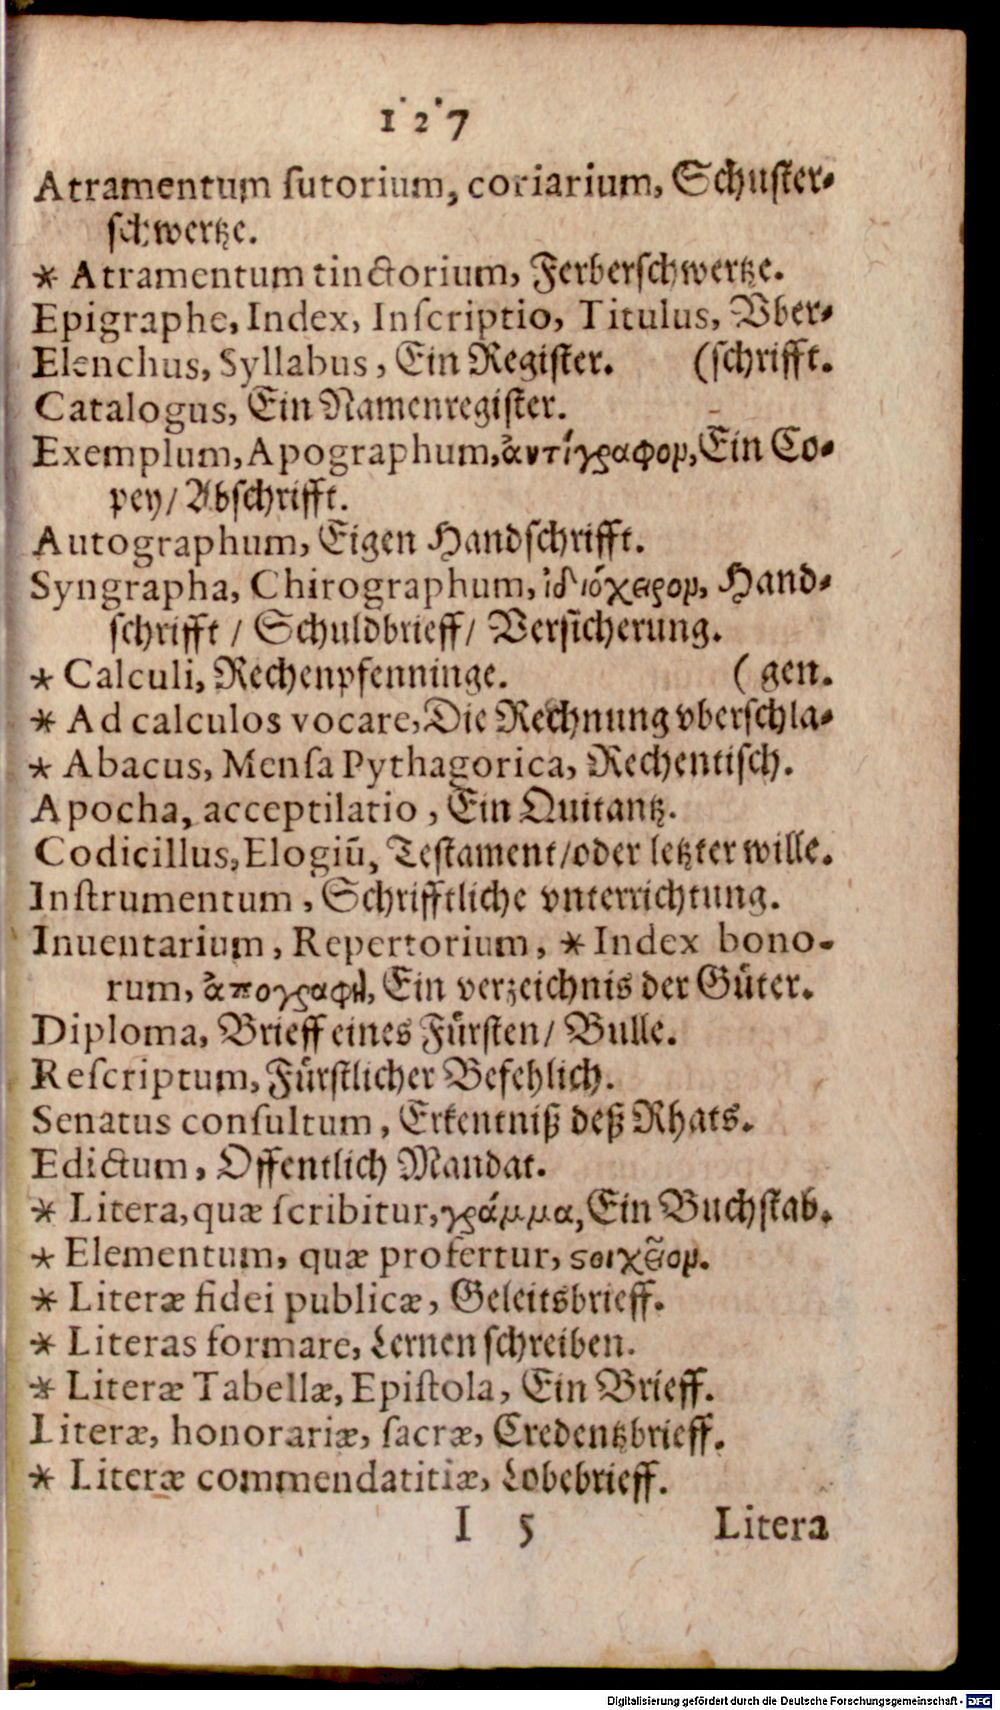 127
Atramentum ſutorium, coriarium, Schuſter⸗
ſchwertze.
* Atramentum tinctorium, Ferberſchwertze.
Epigraphe, Index, Inſcriptio, Titulus, Vber⸗
Elenchus, Syllabus, Ein Regiſter. (ſchrifft.
Catalogus, Ein Namenregiſter.
Exemplum, Apographum, ἀντίγραφομ, Ein Co⸗
pey/ Abſchrifft.
Autographum, Eigen Handſchrifft.
Syngrapha, Chirographum, ἰδιόχειρομ, Hand⸗
ſchrifft / Schuldbrieff/ Verſicherung.
* Calculi, Rechenpfenninge. (gen.
* Ad calculos vocare, Die Rechnung vberſchla⸗
* Abacus, Menſa Pythagorica, Rechentiſch.
Apocha, acceptilatio, Ein Quitantz.
Codicillus, Elogiũ, Teſtament/oder letzter wille.
Inſtrumentum, Schrifftliche vnterrichtung.
Inuentarium, Repertorium, * Index bono-
rum, ἀπογραφὴ, Ein verzeichnis der Guͤter.
Diploma, Brieff eines Fuͤrſten/ Bulle.
Reſcriptum, Fuͤrſtlicher Befehlich.
Senatus conſultum, Erkentniß deß Rhats.
Edictum, Offentlich Mandat.
* Litera, quæ ſcribitur, γράμμα, Ein Buchſtab.
* Elementum, quæ profertur, ϛοιχεῖομ.
* Literæ fidei publicæ, Geleitsbrieff.
* Literas formare, Lernen ſchreiben.
* Literæ Tabellæ, Epiſtola, Ein Brieff.
Literæ, honorariæ, ſacræ, Credentzbrieff.
* Literæ commendatitiæ, Lobebrieff.
I 5 Litera
Digitalisierung gefördert durch die Deutsche Forschungsgemeinschaft - DFG